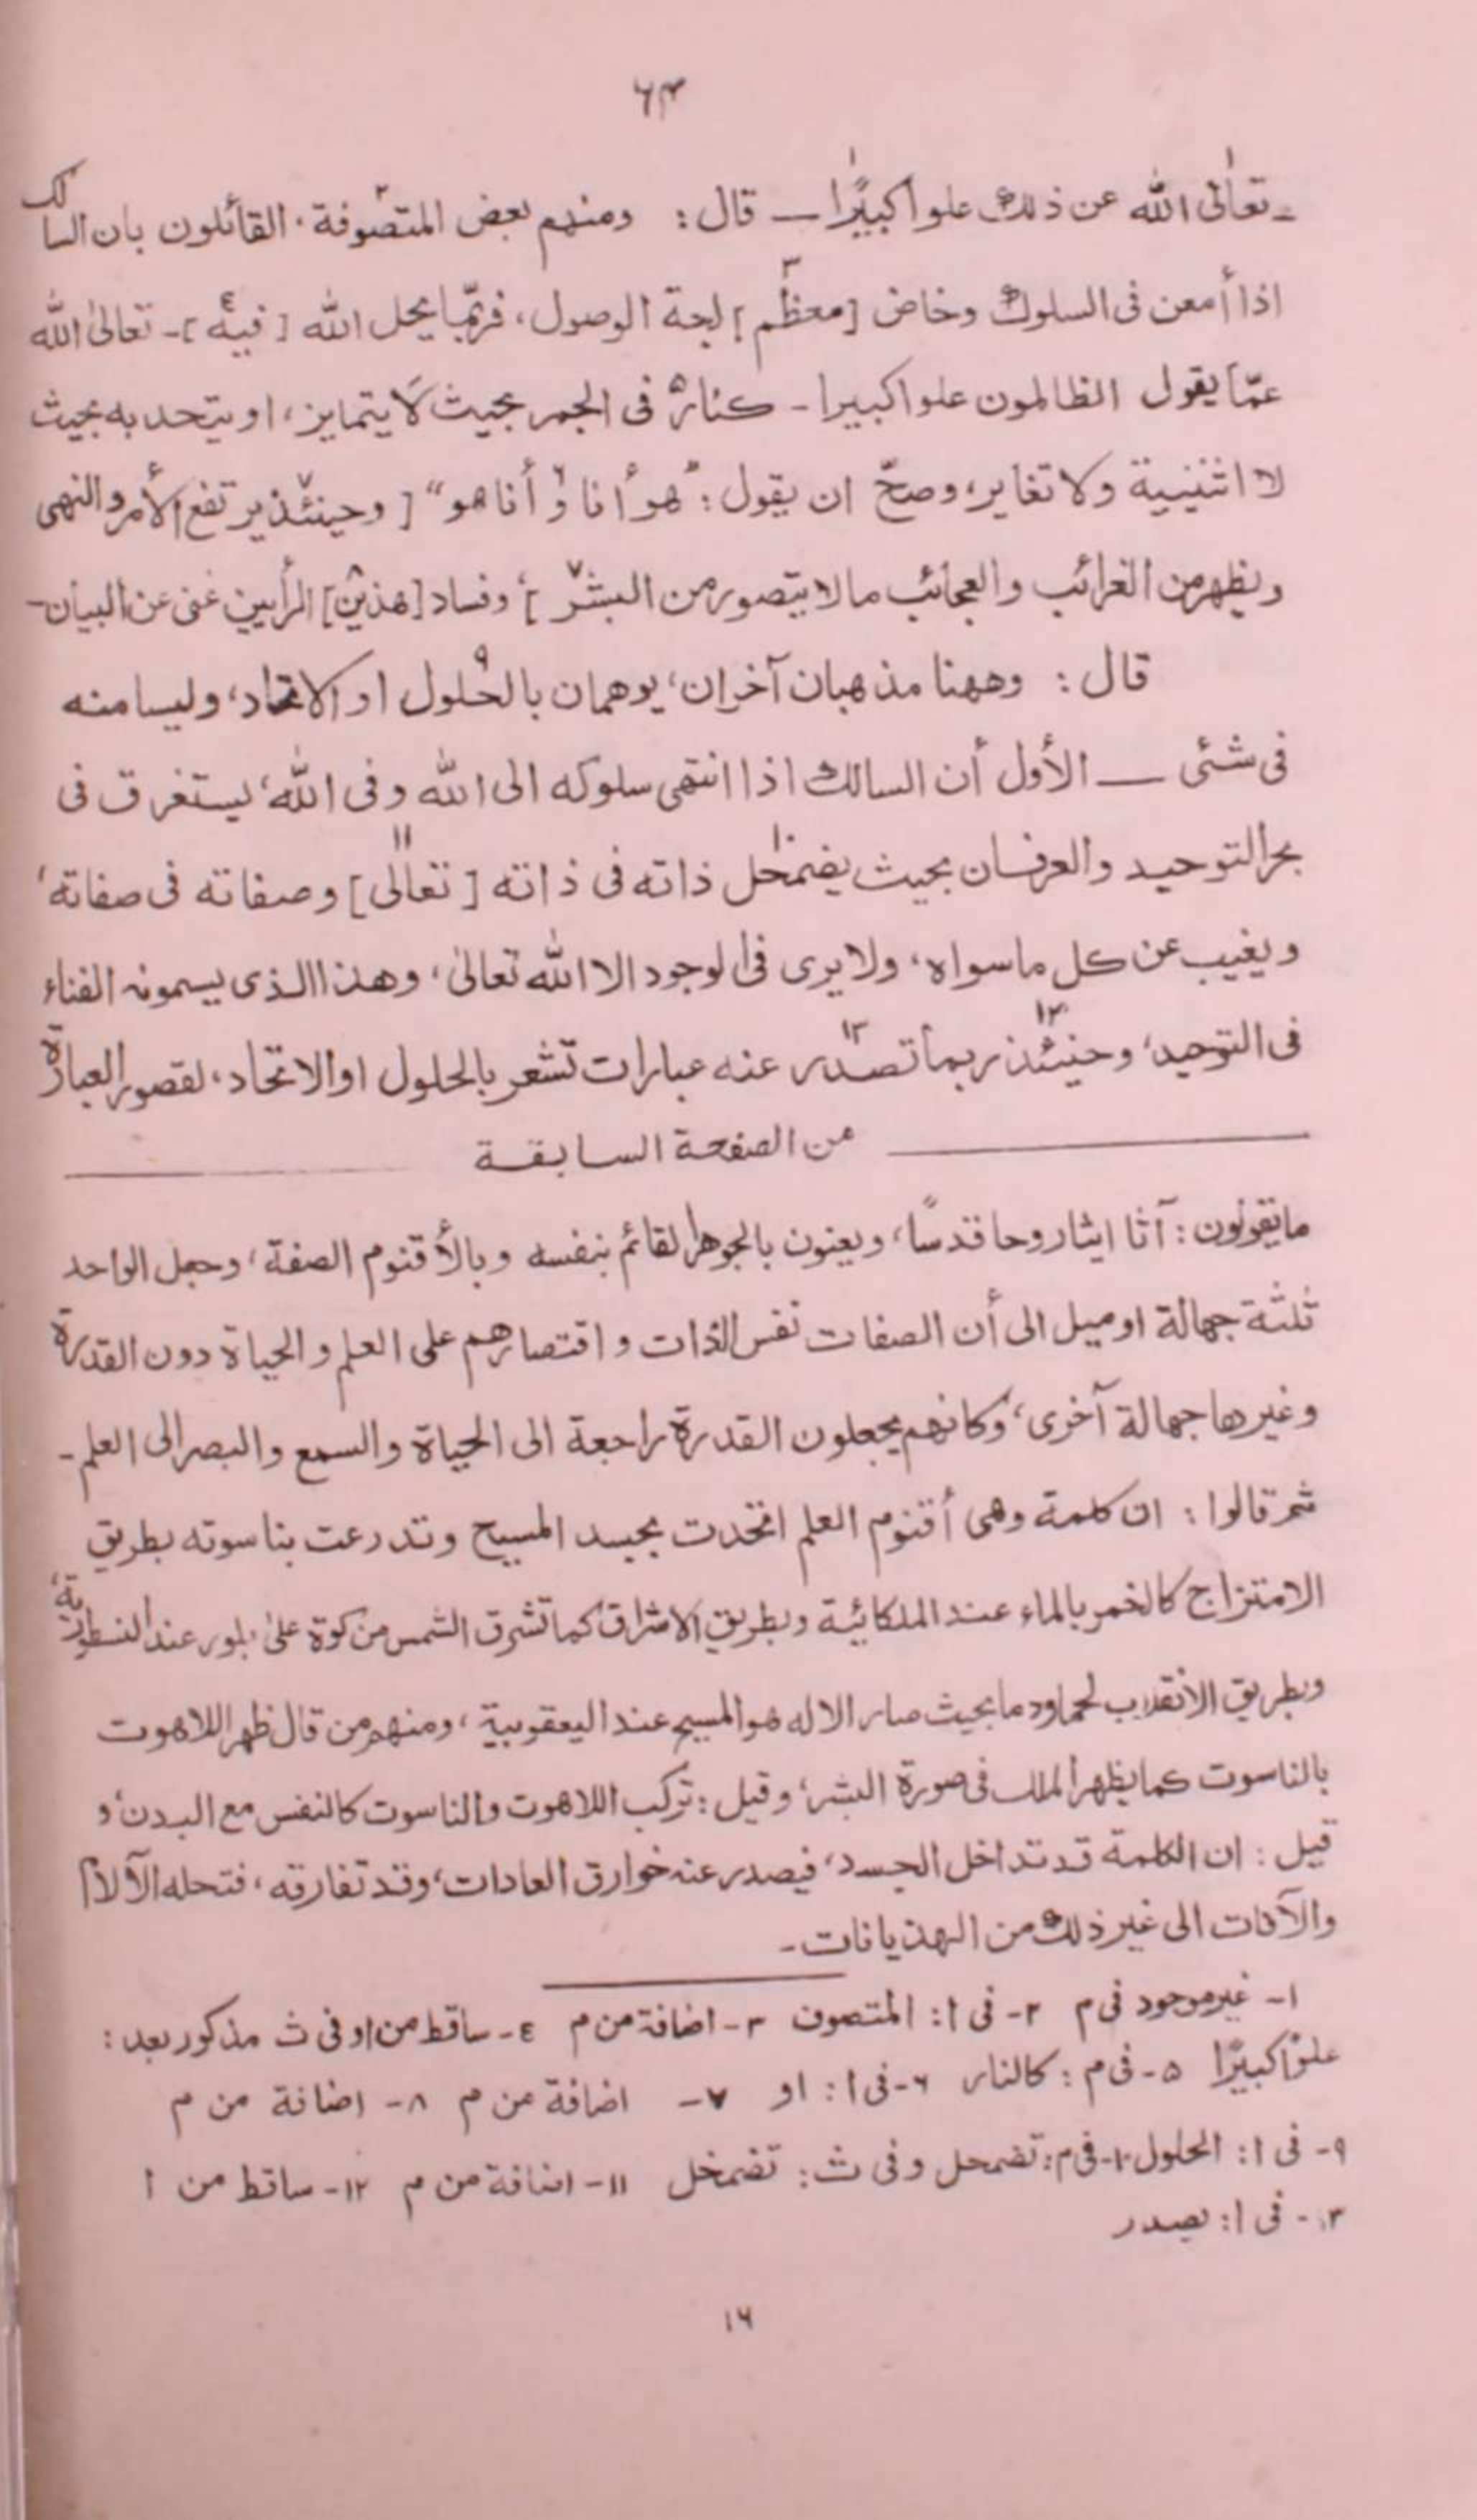 ۶۳
ـ تعالى١ الله عن ذلك علوا كبيرًا ـــ قال : ومنهم بعض المتصوفة٢ القائلون بان السالك
اذا أمعن فى السلوك وخاض [معظم٣] لجة الوصول، فربّما يحل الله [فيه٤] ـ تعالىٰ الله
عمّا يقول الظالمون علوا كبيرا ـ كنار٥ فى الجمر بحيث لا يتمايز، او يتحد به بحيث
لا اثنينية ولا تغاير، وصحّ ان يقول : "هو أنا و٦ أنا هو" [ وحينئذ يرتفع الأمر والنهى
ويظهر من الغرائب والعجائب ما لا يتصور من البشر٧ ]، وفساد [هذين٨] الرأيين غنى عن البيان ـ
قال : وههنا مذهبان آخران، يوهمان بالحلول٩ او الاتحاد، وليسا منه
فى شئى ـــ الأول أن السالك اذا انتهى سلوكه الى الله وفى الله، يستغرق فى
بحر التوحيد والعرفان بحيث يضمحل١٠ ذاته فى ذاته [ تعالى١١] وصفاته فى صفاته،
ويغيب عن كل ما سواه، ولا يرى فى الوجود الا الله تعالىٰ، وهذا الذى يسمونه الفناء
فى التوحيد، وحينئذ١٢ ربما تصدر١٣ عنه عبارات تشعر بالحلول او الاتحاد، لقصور العبارة
من الصفحة السابقة
ما يقولون : آثا ايثا روحا قدسًا، ويعنون بالجوهر القائم بنفسه وبالأقنوم الصفة، وجعل الواحد
ثلثة جهالة او ميل الى أن الصفات نفس الذات واقتصارهم على العلم والحياة دون القدرة
وغيرها جهالة آخرى، وكانهم يجعلون القدرة راجعة الى الحياة والسمع والبصر الى العلم ـ
ثم قالوا : ان كلمة وهى أقنوم العلم اتحدت بجسد المسيح وتدرعت بناسوته بطريق
الامتزاج كالخمر بالماء عند الملكائية وبطريق الاشراق كما تشرق الشمس من كوة علىٰ بلور عند النسطورية،
وبطريق الانقلاب لحما ودما بحيث صار الاله هو المسيح عند اليعقوبية، ومنهم من قال ظهر اللاهوت
بالناسوت كما يظهر الملك فى صورة البشر، وقيل : تركب اللاهوت والناسوت كالنفس مع البدن، و
قيل : ان الكلمة قد تداخل الجسد، فيصدر عنه خوارق العادات، وقد تفارقه، فتحله الآلام
والآفات الى غير ذلك من الهذيانات ـ
١ـ غير موجود فى م ٢ـ فى ا : المتصوف ٣ـ اضافة من م ٤ـ ساقط من ا وفى ث مذكور بعد :
علوًا كبيرًا ٥ـ فى م : كالنار ٦ـ فى ا : او ٧ـ اضافة من م ٨ـ اضافة من م
٩ـ فى ا : الحلول ١٠ـ فى م : تضمحل وفى ث : تضمخل ١١ـ اضافة من م ١٢ـ ساقط من ا
١٣ـ فى ا : يصدر
۱۶